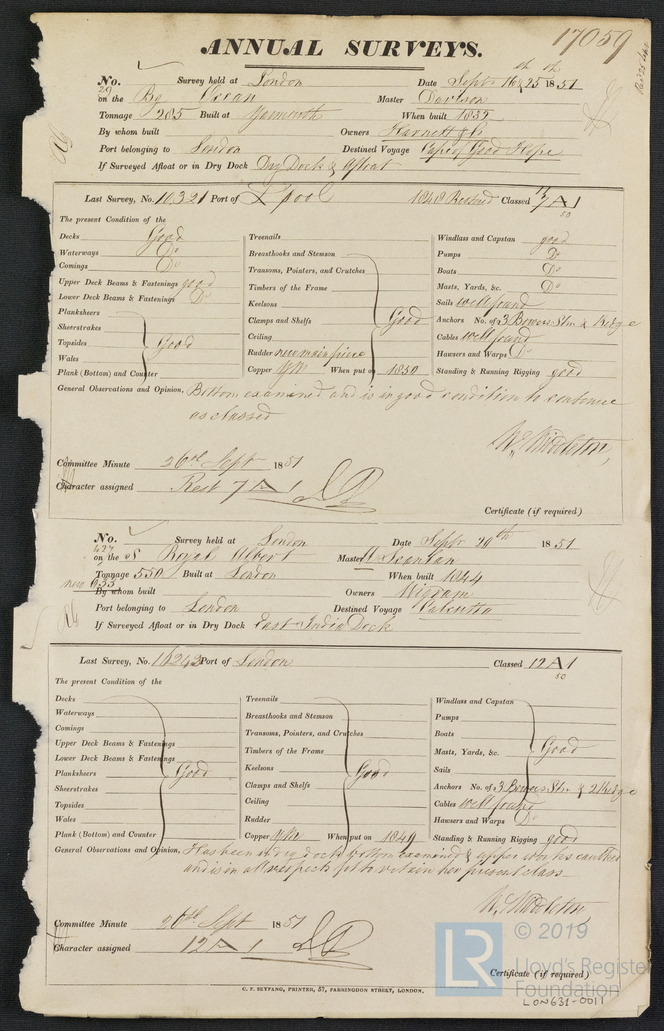 17059
ANNUAL SURVEYS.
No. 29 Survey held at London Date Septr 16th & 25th 1851
on the Bg Ocean Master Davison
Tonnage 285 Built at Yarmouth When built 1832
By whom built Owners Harnett & Co
Port belonging to London Destined Voyage Cape of Good Hope
If Surveyed Afloat or in Dry Dock Dry Dock & Afloat
Last Survey, No. 10321 Port of Lpool 1848 Restord Classed 7 A 1
50
The present Condition of the
Decks Good
Waterways Do
Comings Do
Upper Deck Beams & Fastenings good
Lower Deck Beams & Fastenings Do
Planksheers
Sheerstrakes
Topsides Good
Wales
Plank (Bottom) and Counter
Treenails
Breasthooks and Stemson
Transoms, Pointers, and Crutches
Timbers of the Frame
Keelsons
Clamps and Shelfs Good
Ceiling
Rudder new main piece
Copper YM When put on 1850
Windlass and Capstan good
Pumps Do
Boats Do
Masts, Yards, &c. Do
Sails well found
Anchors No. of 3 Bowers Strm & Kedge
Cables well found
Hawsers and Warps Do
Standing & Running Rigging good
General Observations and Opinion, Bottom examined and is in good condition to continue
as classed
W. Middleton,
Committee Minute 26th Sept 1851
Character assigned Rest 7 A 1
Certificate (if required)
No. 427 Survey held at London Date Septr 20th 1851
on the S Royal Albert Master Scanlan
Tonnage 550 Built at London When built 1844
new 633
By whom built Owners Wigram
Port belonging to London Destined Voyage Calcutta
If Surveyed Afloat or in Dry Dock East India Dock
Last Survey, No. 16242 Port of London Classed 12 A 1
50
The present Condition of the
Decks
Waterways
Comings
Upper Deck Beams & Fastenings
Lower Deck Beams & Fastenings
Planksheers Good
Sheerstrakes
Topsides
Wales
Plank (Bottom) and Counter
Treenails
Breasthooks and Stemson
Transoms, Pointers, and Crutches
Timbers of the Frame
Keelsons Good
Clamps and Shelfs
Ceiling
Rudder
Copper YM When put on 1849
Windlass and Capstan
Pumps
Boats
Masts, Yards, &c. Good
Sails
Anchors No. of 3 Bowers Strm & 2 Kedge
Cables well found
Hawsers and Warps Do
Standing & Running Rigging good
General Observations and Opinion, Has been in dry dock, bottom examined & upper works caulked
and is in all respects fit to retain her present class
W. Middleton,
Committee Minute 26th Sept 1851
Character assigned 12 A 1
Certificate (if required)
C. F. SEYFANG, PRINTER, 57, FARRINGDON STREET, LONDON.
LR © 2019
Lloyd's Register
Foundation
LON631-0011